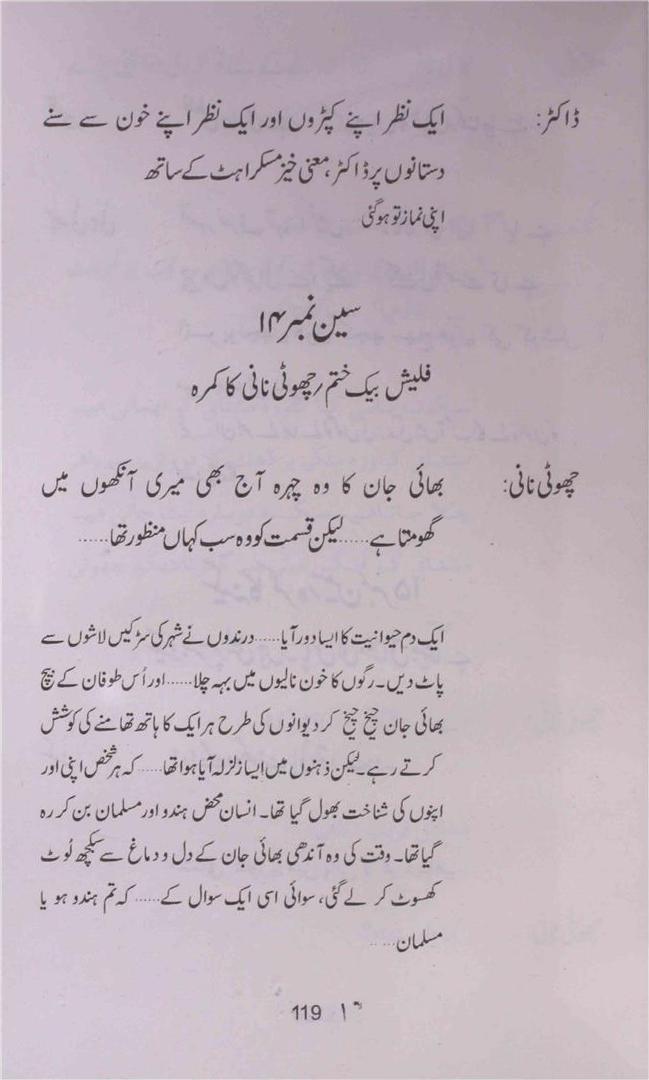 ڈاکٹر: ایک نظر اپنے کپڑوں اور ایک نظر اپنے خون سے سنے
دستانوں پر ڈاکٹر، معنی خیز مسکراہٹ کے ساتھ
اپنی نماز تو ہوگئی
سین نمبر ۱۴
فلیش بیک ختم / چھوٹی نانی کا کمرہ
چھوٹی نانی: بھائی جان کا وہ چہرہ آج بھی میری آنکھوں میں
گھومتا ہے...... لیکن قسمت کو وہ سب کہاں منظور تھا......
ایک دم حیوانیت کا ایسا دور آیا...... درندوں نے شہر کی سڑکیں لاشوں سے
پاٹ دیں۔ رگوں کا خون نالیوں میں بہہ چلا...... اور اُس طوفان کے بیچ
بھائی جان چیخ چیخ کر دیوانوں کی طرح ہر ایک کا ہاتھ تھامنے کی کوشش
کرتے رہے۔ لیکن ذہنوں میں ایسا زلزلہ آیا ہوا تھا...... کہ ہر شخص اپنی اور
اپنوں کی شناخت بھول گیا تھا۔ انسان محض ہندو اور مسلمان بن کر رہ
گیا تھا۔ وقت کی وہ آندھی بھائی جان کے دل و دماغ سے سبکچھ لُوٹ
کھسوٹ کر لے گئی، سوائی اسی ایک سوال کے...... کہ تم ہندو ہو یا
مسلمان......
119